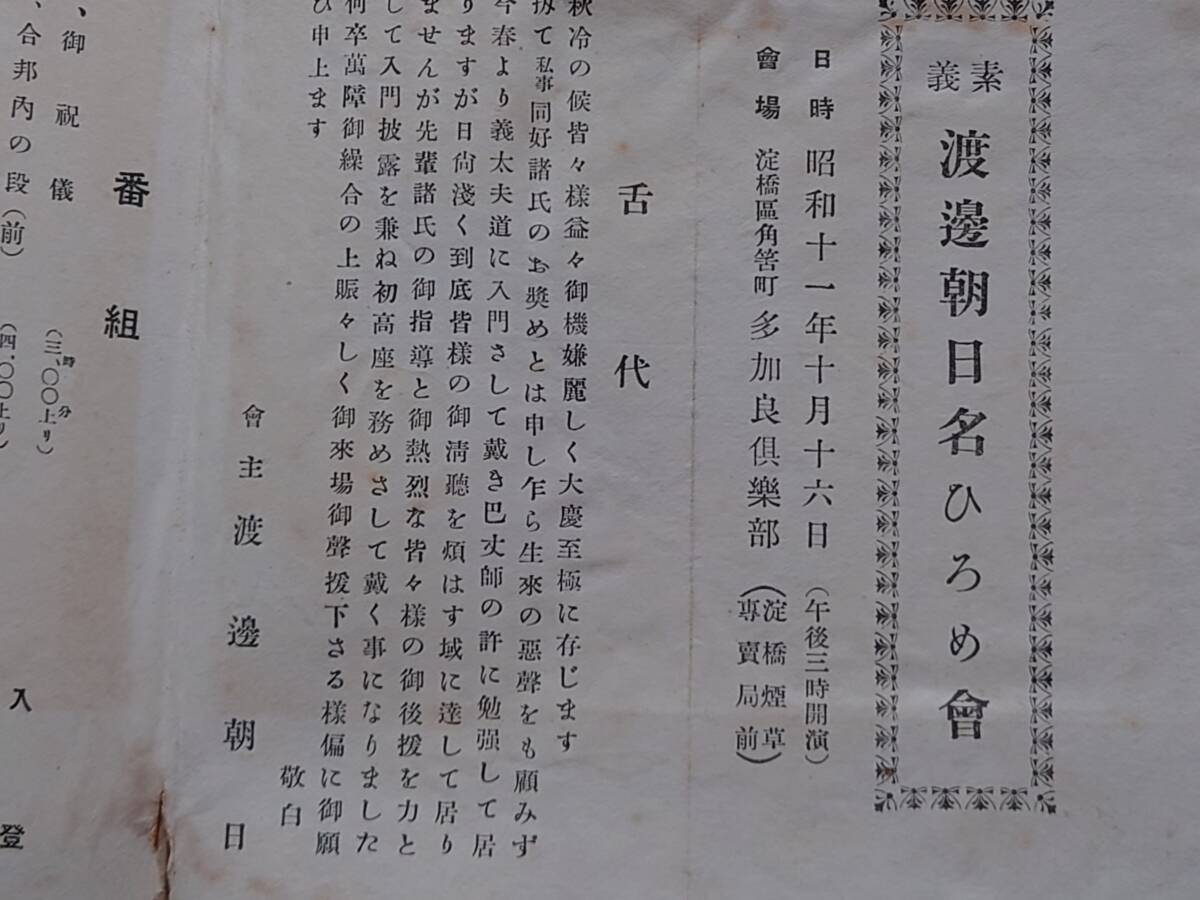 素義
渡邊朝日名ひろめ會
日時 昭和十一年十月十六日(午後三時開演)
會場 淀橋區角筈町 多加良俱樂部(淀橋煙草專賣局前)
舌代
秋冷の候皆々樣益々御機嫌麗しく大慶至極に存じます
扨て私事同好諸氏のお奬めとは申し乍ら生來の惡聲をも顧みず
今春より義太夫道に入門さして戴き巴丈師の許に勉强して居
りますが日尙淺く到底皆樣の御淸聽を煩はす域に達して居り
ませんが先輩諸氏の御指導と御熱烈な皆々樣の御後援を力と
して入門披露を兼ね初高座を務めさして戴く事になりました
何卒萬障御繰合の上賑々しく御來場御聲援下さる樣偏に御願
ひ申上ます
敬白
會主 渡邊朝日
番組
、御祝儀 (三、〇〇上リ) 時分
、合邦內の段(前) (四、〇〇上リ)
入
登